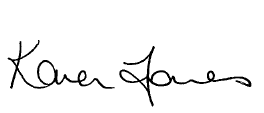 Karen Jones